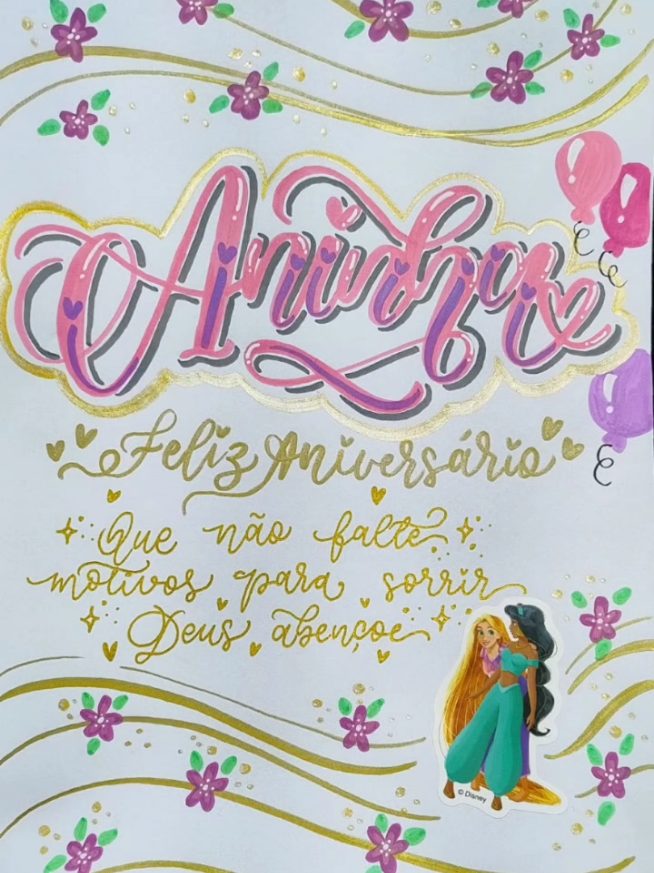 Aninha
Feliz Aniversário
Que não falte
motivos para sorrir
Deus abençoe
© Disney